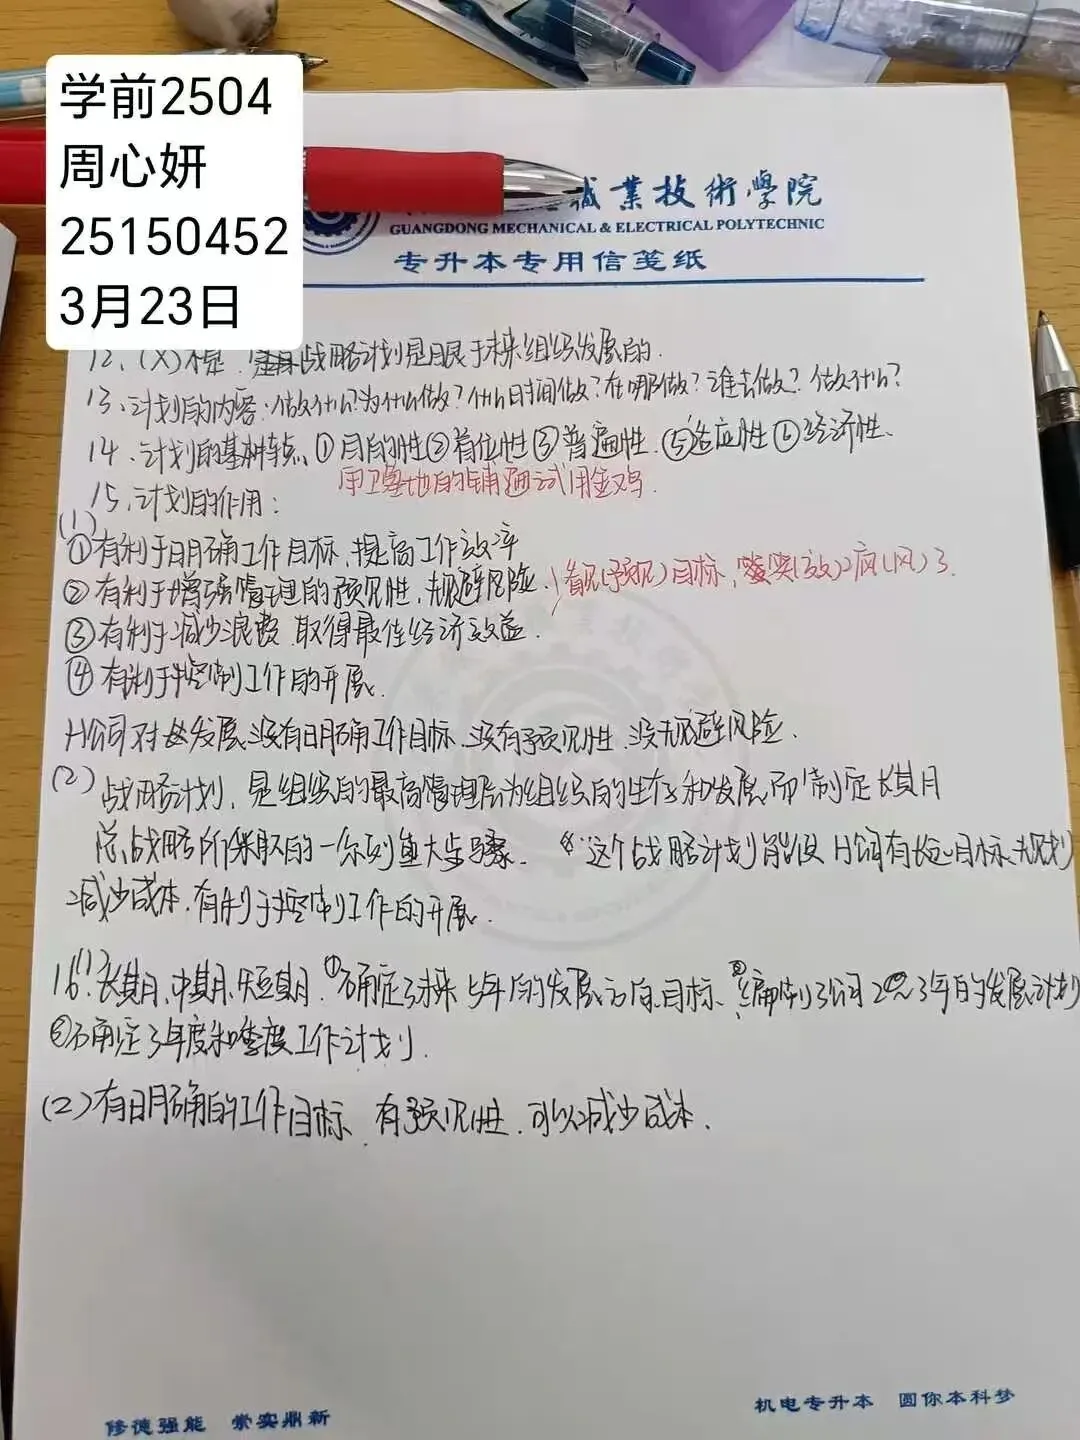 学前2504
周心妍
25150452
3月23日
職業技術學院
GUANGDONG MECHANICAL & ELECTRICAL POLYTECHNIC
专升本专用信笺纸
12、(X)不是. 战略计划是眼于未来组织发展的.
13、计划的内容:做什么?为什么做?什么时间做?在哪做?谁去做?做什么?
14、计划的基本特点、①目的性②首位性③普遍性.⑤适应性⑥经济性、
用卫基地的铺通试用金鸡.
15、计划的作用:
(1)
①有利于明确工作目标、提高工作效率
②有利于增强管理的预见性,规避风险.
看见(预见)目标,笑(效)疯(风)了.
③有利于减少浪费 取得最佳经济效益.
④有利于控制工作的开展.
H公司对发展没有明确工作目标.没有预见性.没规避风险.
(2)战略计划,是组织的最高管理层为组织的生存和发展而制定长期
总战略所采取的一系列重大步骤. 这个战略计划能使H公司有长远目标、规划
减少成本.有利于控制工作的开展.
16.(1)长期、中期、短期.①确定了未来5年的发展方向、目标、②编制了公司2~3年的发展计划
③确定了年度和季度工作计划.
(2)有明确的工作目标、有预见性.可以减少成本.
修德强能 崇实鼎新
机电专升本 圆你本科梦